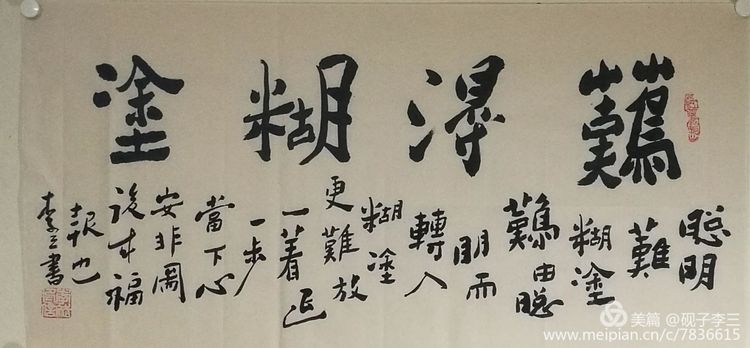 難得糊塗
聰明
難
糊塗
難由聰
明而
轉入
糊塗
更難放
一着退
一步
當下心
安非圖
後來福
報也
李三書
美篇 @砚子李三
www.meipian.cn/c/7836615